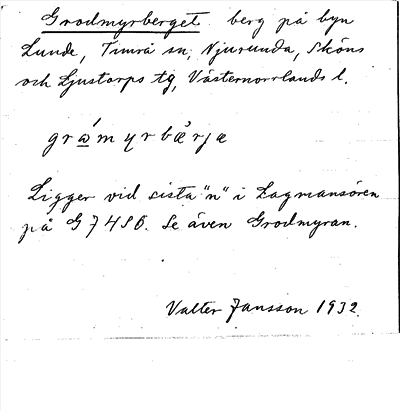 Grodmyrberget berg på byn
Lunde, Timrå sn, Njurunda, Sköns
och Ljustorps tg, Västernorrlands l.
gr󠄀ώ̲myrbæ̀rjæ
Ligger vid sista "n" i Lagmansören
på G 74SO. Se även Grodmyran.
Valter Jansson 1932.